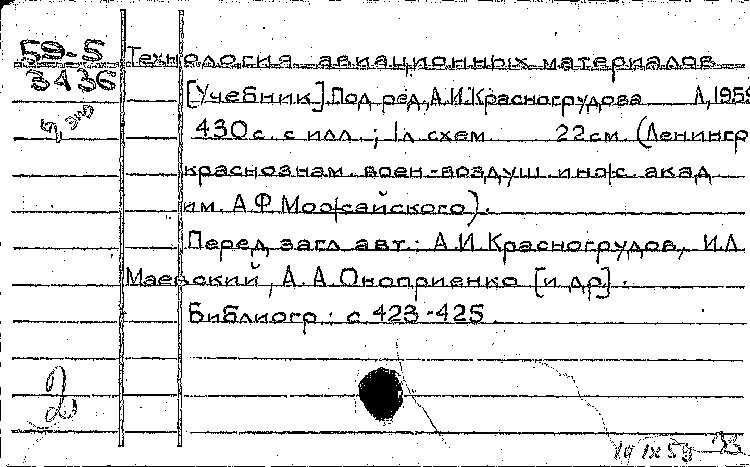 59-5
3436
5 экз
Технология авиационных материалов
[Учебник]. Под ред. А.И.Красногрудова Л, 1959
430 с. с илл.; 1 л схем 22 см. (Ленингр
краснознам. воен-воздуш. инж. акад
им. А.Ф.Можайского).
Перед загл авт.: А.И.Красногрудов, И.Л
Маевский, А.А.Оноприенко [и др].
Библиогр.: с 423-425
2
19 IX 59